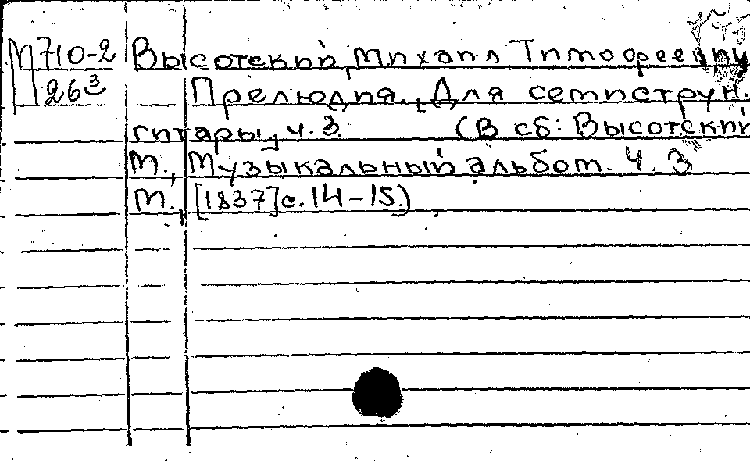 М710-2 Высотский, Михаил Тимофеевич
26³ Прелюдия. [Для семиструн.
гитары], ч. 3 (В сб: Высотский
М., Музыкальный альбом. Ч. 3
М., [1837] с. 14-15.)